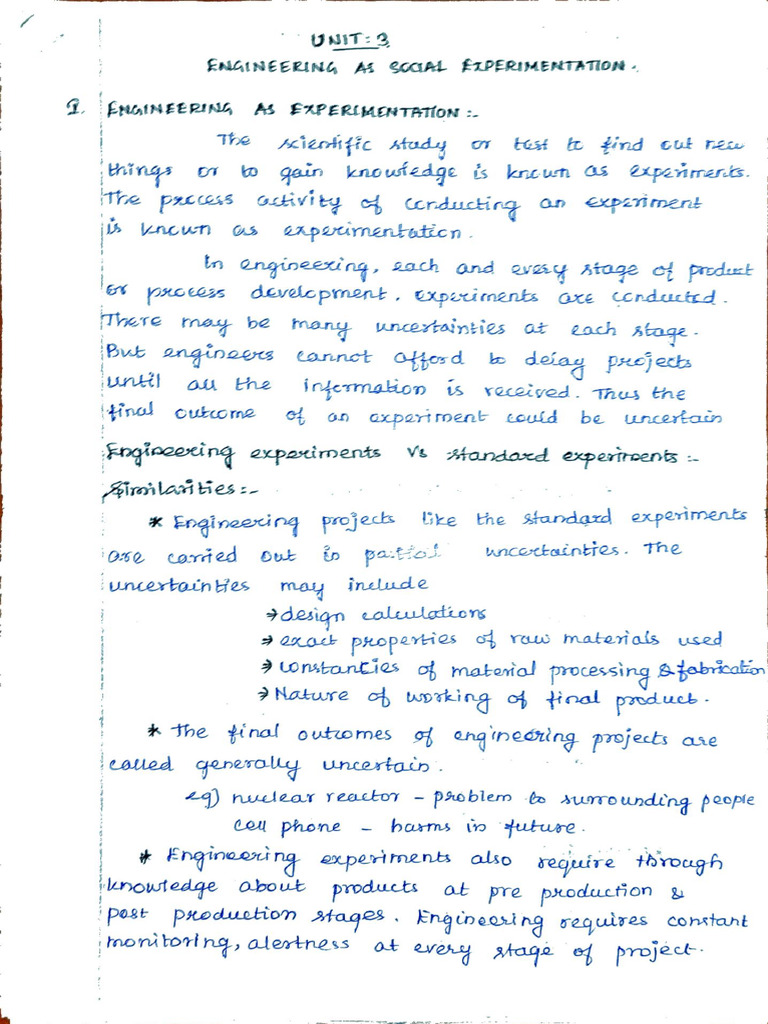 UNIT: 3
ENGINEERING AS SOCIAL EXPERIMENTATION.
I. ENGINEERING AS EXPERIMENTATION:-
The scientific study or test to find out new
things or to gain knowledge is known as experiments.
The process activity of conducting an experiment
is known as experimentation.
In engineering, each and every stage of product
or process development, experiments are conducted.
There may be many uncertainties at each stage.
But engineers cannot afford to delay projects
until all the information is received. Thus the
final outcome of an experiment could be uncertain
Engineering experiments Vs standard experiments:-
Similarities:-
* Engineering projects like the standard experiments
are carried out in partial uncertainties. The
uncertainties may include
→ design calculations
→ exact properties of raw materials used
→ constancies of material processing & fabrication
→ Nature of working of final product.
* The final outcomes of engineering projects are
called generally uncertain.
eg) nuclear reactor - problem to surrounding people
cell phone - harms in future.
* Engineering experiments also require through
knowledge about products at pre production &
post production stages. Engineering requires constant
monitoring, alertness at every stage of project.